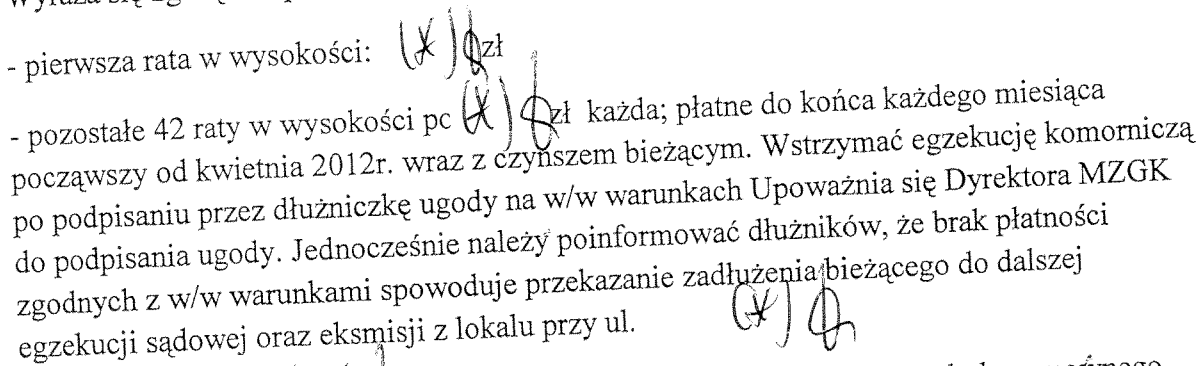 - pierwsza rata w wysokości: (*) zł
- pozostałe 42 raty w wysokości pc (*) zł każda; płatne do końca każdego miesiąca
począwszy od kwietnia 2012r. wraz z czynszem bieżącym. Wstrzymać egzekucję komorniczą
po podpisaniu przez dłużniczkę ugody na w/w warunkach Upoważnia się Dyrektora MZGK
do podpisania ugody. Jednocześnie należy poinformować dłużników, że brak płatności
zgodnych z w/w warunkami spowoduje przekazanie zadłużenia bieżącego do dalszej
egzekucji sądowej oraz eksmisji z lokalu przy ul. (*)